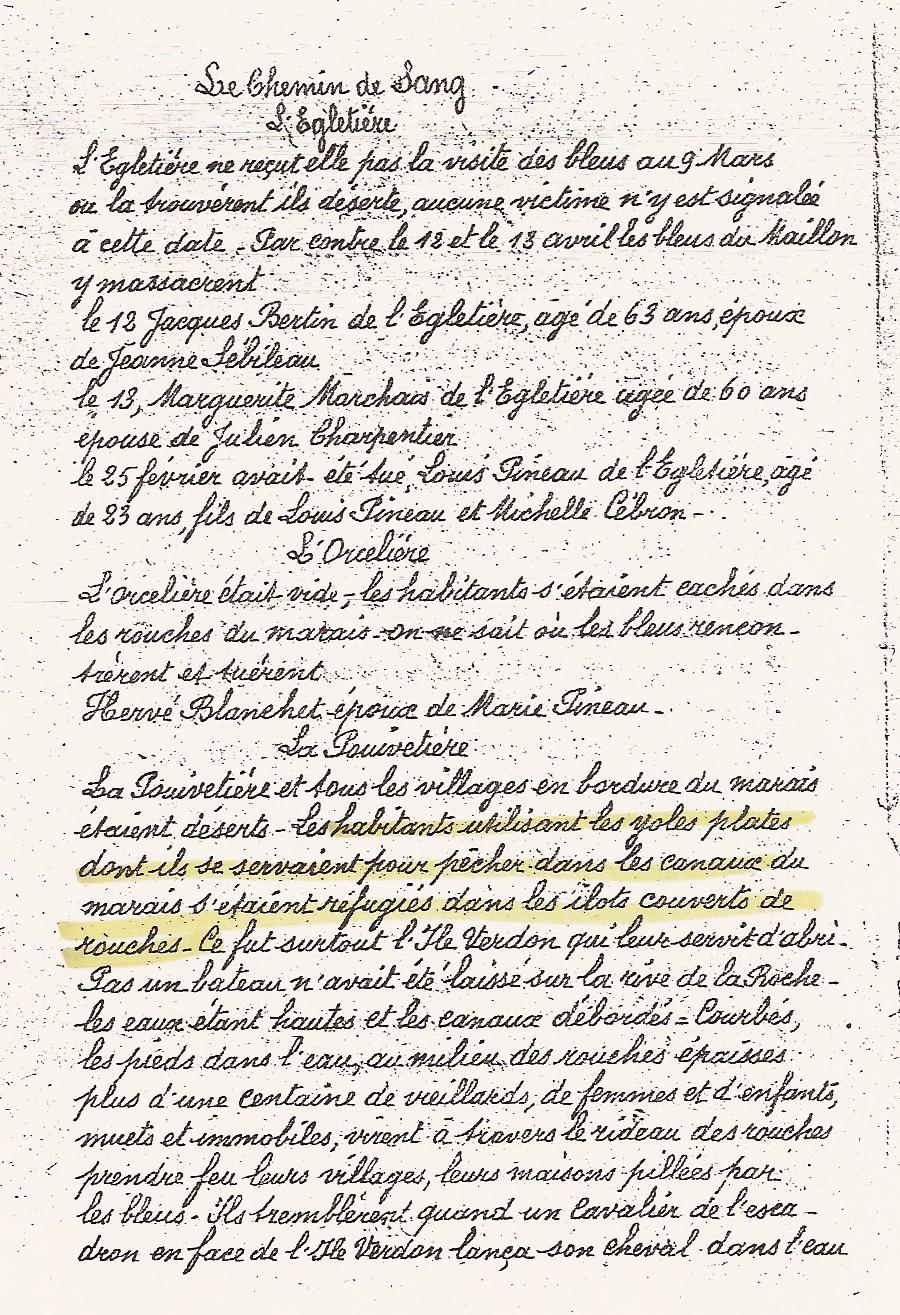 Le Chemin de Sang
L'Egletiére
L'Egletiére ne reçut elle pas la visite des bleus au 9 Mars
ou la trouvérent ils déserte, aucune victime n'y est signalée
à cette date - Par contre le 12 et le 13 avril les bleus du Maillon
y massacrent
le 12 Jacques Bertin de l'Egletière, agé de 63 ans, époux
de Jeanne Sébileau
le 13, Marguerite Marchais de l'Egletiére agée de 60 ans
épouse de Julien Charpentier
le 25 février avait été tué, Louis Pineau de l'Egletiére, agé
de 23 ans, fils de Louis Pineau et Michelle Cébron -
L'Orceliére
L'orceliére était vide - les habitants s'étaient cachés dans
les rouches du marais - on ne sait où les bleus rencon-
trèrent et tuérent
Hervé Blanchet époux de Marie Pineau -
La Pouivetiére
La Pouivetiére et tous les villages en bordure du marais
étaient déserts - les habitants utilisant les yoles plates
dont ils se servaient pour pêcher dans les canaux du
marais s'étaient réfugiés dans les ilots couverts de
rouches - Ce fut surtout l'Ile Verdon qui leur servit d'abri -
Pas un bateau n'avait été laissé sur la rive de la Roche -
les eaux étant hautes et les canaux débordés = Courbés,
les pieds dans l'eau, au milieu des rouches épaisses
plus d'une centaine de vieillards, de femmes et d'enfants,
muets et immobiles, virent à travers le rideau des rouches
prendre feu leurs villages, leurs maisons pillées par
les bleus - Ils tremblérent quand un cavalier de l'esca-
dron en face de l'Ile Verdon lança son cheval dans l'eau